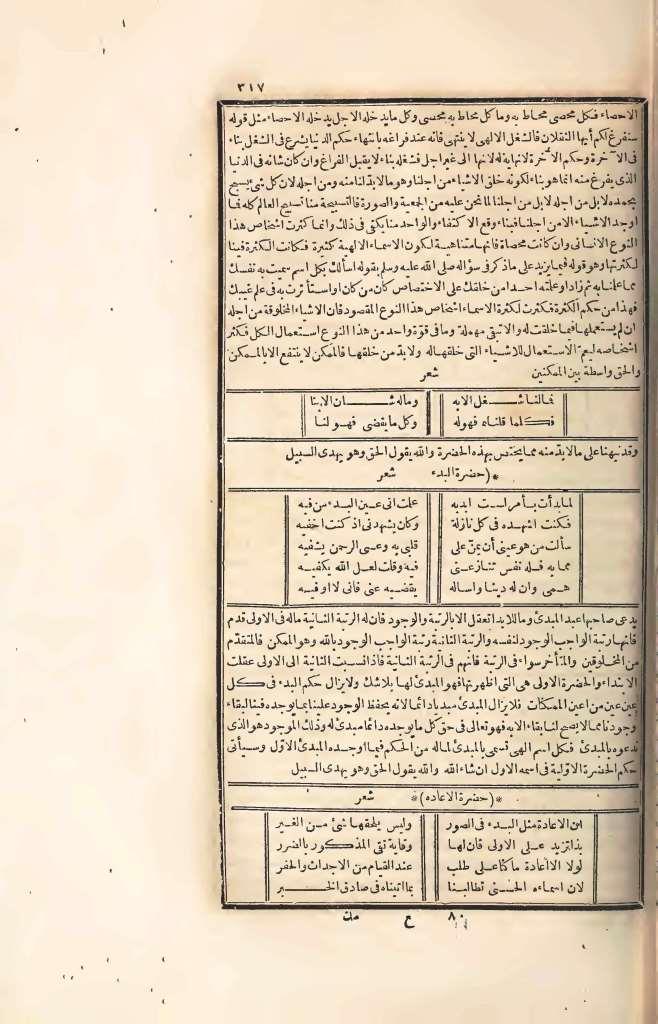 ٣١٧
الاحصاء فكل محصى محاط به وما كل محاط به محصى وكل ما يدخله الاجل يدخله الاحصاء مثل قوله
سنفرغ لكم أيها الثقلان فالشغل الالهى لا ينتهى فانه عند فراغه بانتهاء حكم الدنيا يشرع فى الشغل بناء
فى الآخرة وحكم الآخرة لا نهاية له لانها الى غير اجل فشغله بناء لا يقبل الفراغ وان كان شانه فى الدنيا
الذى يفرغ منه انما هو بناء لكونه خلق الاشياء من اجلنا وهو ما لا بد لنا منه ومن اجله لان كل شئ يسبح
بحمده لا بل من اجله لا بل من اجلنا لما نحن عليه من الجمعية والصورة فالتسبيحة منا تسبيح العالم كله فما
اوجد الاشياء الا من اجلنا فبناء وقع الاكتفاء والواحد منا يكفى فى ذلك وانما كثرت اشخاص هذا
النوع الانسانى وان كانت محصاة فانها متناهية لكون الاسماء الالهية كثيرة فكانت الكثرة فينا
لكثرتها وهو قوله فيما يزيد على ما ذكر فى سؤاله صلى الله عليه وسلم بقوله اسألك بكل اسم سميت به نفسك
مما علمنا به ثم زاد او علمته احدا من خلقك على الاختصاص كان من كان او استأثرت به فى علم غيبك
فهذا من حكم الكثرة فكثرت لكثرة الاسماء اشخاص هذا النوع المقصود فان الاشياء المخلوقة من اجله
ان لم يستعملها فيما خلقت له والا تبقى مهملة وما فى قوة واحد من هذا النوع استعمال الكل فكثر
اشخاصه ليعم الاستعمال للاشياء التى خلقها له ولا بد من خلقها فالممكن لا ينتفع الا بالممكن
والحق واسطة بين الممكنين شعر
فما لنا شغل الا به وما له شان الا بنا
فكلما قلناه فهو له وكل ما يقضى فهو لنا
وقد نبهنا على ما لا بد منه مما يختص بهذه الحضرة والله يقول الحق وهو يهدى السبيل
*(حضرة البدء شعر
لما بدأت بأمر لست ابديه علمت انى عين البدء من فيه
فكنت اشهده فى كل نازلة وكان يشهدنى اذ كنت اخفيه
سألت من هو عينى أن يمن على قلبى به وعسى الرحمن يشفيه
مما به فله نفس تنازعنى فيه وقلت لعل الله يكفيه
همى وان له دينا واساله يقضيه عنى فانى لا اوفيه
يدعى صاحبها عبد المبدئ وما للابدا تعقل الا بالرتبة والوجود فان له الرتبة الثانية ماله فى الاولى قدم
فانها رتبة الواجب الوجود لنفسه والرتبة الثانية رتبة الواجب الوجود بالله وهو الممكن فالمتقدم
من المخلوقين والمتأخر سواء فى الرتبة فانهم فى الرتبة الثانية فاذا نسبت الثانية الى الاولى عقلت
الابتداء والحضرة الاولى هى التى اظهرتها فهو المبدئ لها بلا شك ولا يزال حكم البدء فى كل
عين عين من اعين الممكنات فلا يزال المبدئ مبدئا دائما لانه يحفظ الوجود علينا بما يوجده فينا لبقاء
وجودنا مما لا يصح لنا بقاء الا به فهو تعالى فى حق كل ما يوجده دائما مبدئ له وذلك الموجود هو الذى
تدعوه بالمبدئ فكل اسم الهى تسمى بالمبدئ لما له من الحكم فيما اوجده المبدئ الاول وسيأتى
حكم الحضرة الاولية فى اسمه الاول ان شاء الله والله يقول الحق وهو يهدى السبيل
*(حضرة الاعاده)* شعر
ان الاعادة مثل البدء فى الصور وليس يلحقها شئ من الغير
بذا تزيد على الاولى فان لها وقاية تقى المذكور بالضرر
لولا الاعادة ما كنا على طلب عند القيام من الاجداث والحفر
لان اسماءه الحسنى تطالبنا بما اتيناه فى صادق الخبر
٨٠ ع مك